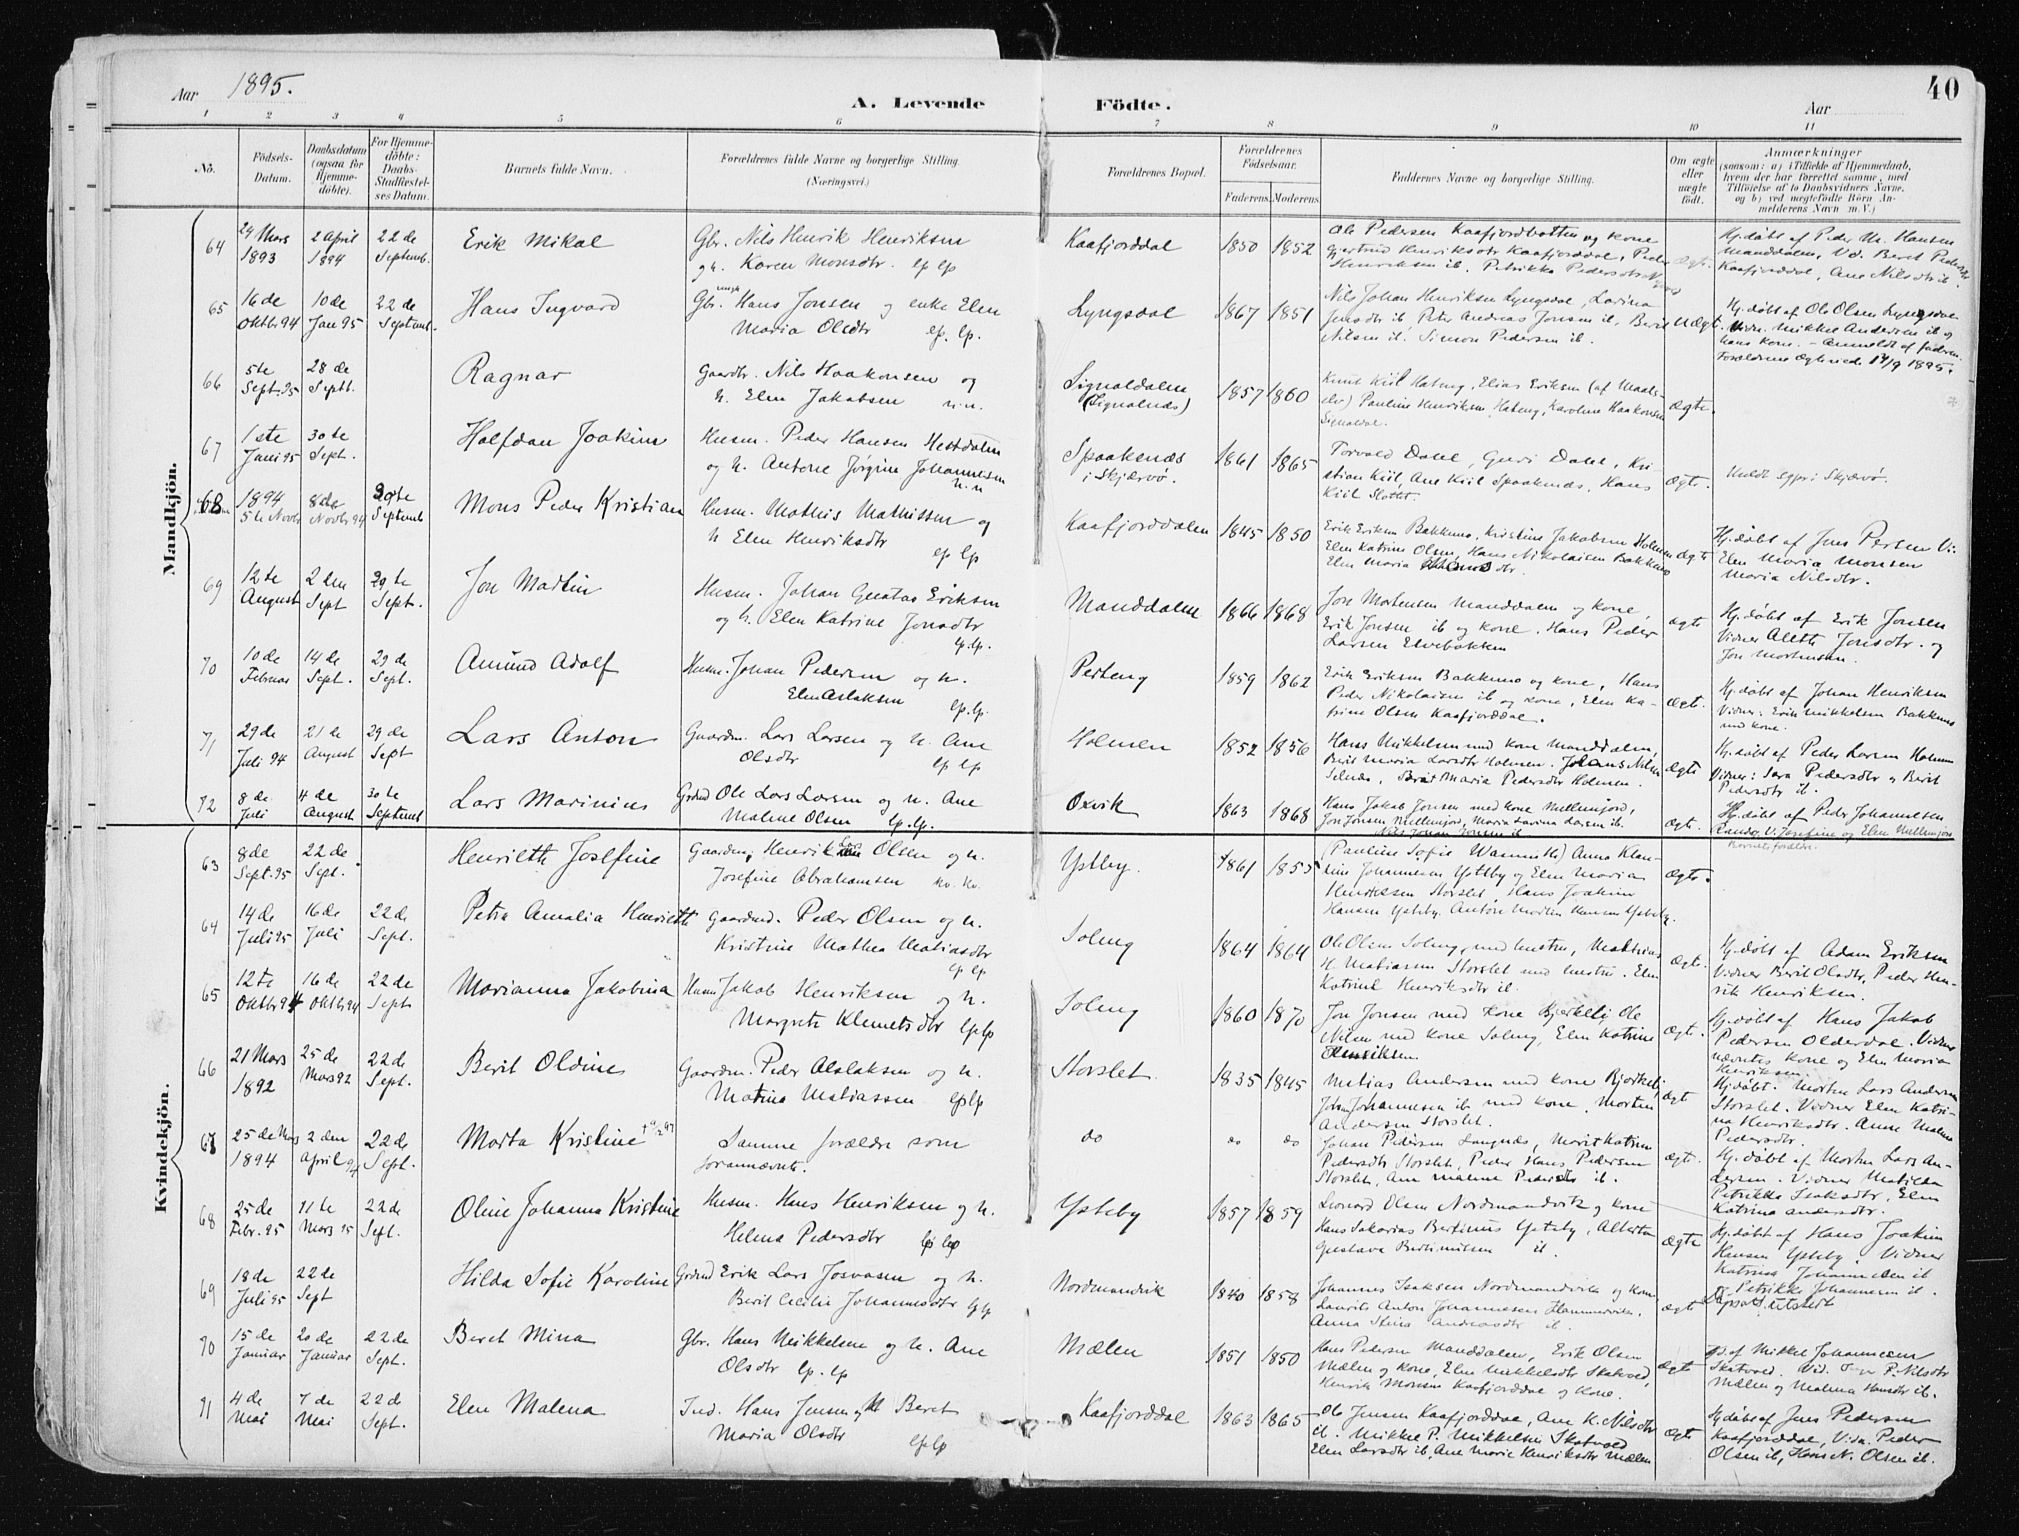 40
Aar 1895.
A. Levende Födte.
Aar
1 2 3 4 5 6 7 8 9 10 11
No.
Födsels-
Datum.
Daabsdatum
(ogsaa for
Hjemme-
döbte).
For Hjemme-
döbte:
Daabs-
Stadfæstel-
ses Datum.
Barnets fulde Navn.
Forældrenes fulde Navne og borgerlige Stilling.
(Næringsvei.)
Forældrenes Bopæl.
Forældrenes
Födselsaar.
Faderens. Moderens.
Faddernes Navne og borgerlige Stilling.
Om ægte
eller
uægte
födt.
Anmærkninger
(saasom: a) i Tilfælde af Hjemmedaab,
hvem der har forrettet samme, med
Tilföielse af to Daabsvidners Navne.
og b) ved uægtefödte Börn An-
melderens Navn m. V.)
Mandkjön.
64 29 Mars 1893 2 April 1894 22 de Septemb. Erik Mikal Gbr. Nils Henrik Henriksen
og h. Karen Monsdtr. lp lp
Kaafjorddal 1850 1852 Ole Pedersen Kaafjordbotten og kone
Gjertrud Henriksdtr Kaafjorddal, Peder
Henriksen ib, Petrikka Pedersdtr
ægte
Hj.døbt af Peder M. Hansen
Manddalen, Vid. Beret Pedersdtr
Kaafjorddal, Ane Nilsdtr ib.
65 16 de Oktbr 94 10 de Jan 95 22 de Septemb. Hans Ingvard Gbr. ungk Hans Jonsen og enke Elen
Maria Olsdtr lp. lp.
Lyngsdal 1867 1851 Nils Johan Henriksen Lyngsdal, Lavina
Jensdtr ib, Peter Andreas Jonsen ib, Berit
Nilsen ib, Simon Pedersen ib.
uægt.
Hj. døbt af Ole Olsen Lyngsdal
Vidn. Mikkel Andersen ib og
hans kone. - Anmeldt af faderen.
Forældrene ægteviede 14/9 1895.
66 5te Sept. 95 28 de Septt. Ragnar Gaardbr. Nils Haakonsen og
h. Elen Jakobsen n.n.
Signaldalen
(Signalnæs) 1857 1860 Knut Kiil Hateng, Elias Eriksen (af Maals-
elv) Pauline Henriksen Hateng, Karoline Haakonsen
Signaldal.
ægte.
67 1 ste Juni 95 30 te Sept. Halfdan Joakim Husm. Peder Hansen Hestdalen
og h. Antone Jørgine Johannesen
n.n
Spaakenæs
i Skjærvø. 1861 1865 Torvald Dahl, Guri Dahl, Kri
stian Kiil, Ane Kiil Spaakenæs, Hans
Kiil Slottet.
ægte.
Meldt sgpr i Skjærvø.
68 1894 5te Novbr 8de Novbr 94 29te Septemb Mons Peder Kristian Husm. Mathis Mathissen og
h Elen Henriksdtr lp lp
Kaafjorddalen 1845 1850 Erik Eriksen Bakkemo, Kristine Jakobsen Holmen
Elen Katrine Olsen, Hans Nikolaisen Bakkemo
Elen Maria
ægte
Hj.døbt af Jens Persen Vi.
Elen Maria Monsen
Maria Nilsdtr.
69 12 te August 2 den Sept 29 te Sept. Jon Martin Husm. Johan Gustav Eriksen
og h. Elen Katrine Jonsdtr
lp.lp.
Manddalen 1866 1868 Jon Mortensen Manddalen og kone,
Erik Jonsen ib og kone. Hans Peder
Larsen Elvebakken
ægte
Hj.døbt af Erik Jonsen
Vidner Aleth Jonsdtr. og
Jon Mortensen.
70 10 de Februar 14 de Sept. 29 de Sept. Amund Adolf Husm. Johan Pedersen og h.
Elen Aslaksen lp.lp.
Perteng 1859 1862 Erik Eriksen Bakkemo og kone, Hans
Peder Nikolaisen ib og kone, Elen Ka-
trine Olsen Kaafjorddal.
ægte.
Hj.døbt af Johan Henriksen
Vidner: Erik Mikkelsen Bakkemo
med kone.
71 29 de Juli 94 21 de August 29 de Sept Lars Anton Gaardm. Lars Larsen og h. Ane
Olsdtr lp lp
Holmen 1852 1856 Hans Mikkelsen med kone Manddalen,
Berit Maria Larsdtr Holmen. Johans Nilsen
Selnæs, Berit Maria Pedersdtr Holmen.
ægte
Hj.døbt af Peder Larsen Holmen
Vidner: Sara Pedersdtr og Berit
Pedersdtr ib.
72 8 de Juli 4 de August 30 te Septemb Lars Marinius Grdmd Ole Lars Larsen og h. Ane
Malene Olsen lp.lp.
Oxvik 1863 1868 Hans Jakob Jonsen med kone Mellemjord,
Jon Jonsen Mellemjord, Maria Lavina Larsen ib.
Nils Johan Jonsen ib
ægte.
Hj.døbt af Peder Johannesen
Rander V. Josefine og Elen Mellemjord
Barnets forældre.
Kvindekjön.
63 8 de Sept. 95 22 de Sept. Henriette Josefine Gaardm. Henrik Olsen og h.
Josefine Abrahamsen kv. kv.
Ysteby. 1861 1855 (Pauline Sofie Warmuth) Anna Klau-
dine Johannesen Ysteby og Elen Maria
Henriksen Storslet, Hans Joakim
Hansen Ysteby. Anton Martin Hansen Ysteby.
ægte.
64 14 de Juli 95 16 de Juli 22 de Sept. Petra Amalia Henriette Gaardmd. Peder Olsen og h.
Kristine Mathea Matiasdtr
lp lp
Soleng 1864 1864 Ole Olsen Soleng, med hustru, Mathias
H. Matiassen Storslet med hustru. Elen
Katrine Henriksdtr ib.
ægte.
Hj.døbt af Adam Eriksen
Vidner Beril Olsdtr, Peder Hen-
rik Henriksen.
65 12te Oktbr 94 16 de Oktbr 94 22 de Sept Marianna Jakobina Husm Jakob Henriksen og h.
Margrete Klemetsdtr lp lp
Soleng 1860 1870 Jon Jonsen med kone Bjerkeli Ole
Nilsen med kone Soleng, Elen Katrine
Henriksen
ægte.
Hj.døbt af Hans Jakob
Pedersen Olderdal. Vidner
nævntes kone og Elen Maria
Henriksen.
66 21 Mars 1892 25 de Mars 92 22 de Sept. Berit Oldine Gaardm. Peder Aslaksen og h.
Matina Matiassen lp lp
Storslet 1835 1845 Matias Andersen med kone Bjørkeli,
Johan Johannesen ib med kone, Morten
Andersen Storslet.
ægt
Hj.døbt. Morten Lars Andersen
Storslet. Vidner Elen Katri-
na Henriksdtr. Anne Malene
Pedersdtr.
67 25 de Mars 1894 2 den April 94 22 de Sept. Marta Kristine Samme forældre som
forannævnte.
do do do Johan Pedersen Langnæs, Marit Katrine
Pedersdtr Storslet, Peder Hans Pedersen
Storslet, Ane Malene Pedersdtr ib.
ægte.
Hj. døbt af Morten Lars An-
dersen. Vidner Matilda
Petrikke Isaksdtr, Elen
Katrina Andersdtr.
68 25 de Febr. 95 11 te Mars 95 22 de Sept. Oline Johanna Kristine Husm. Hans Henriksen og h.
Helena Pedersdtr lp lp
Ysteby 1857 1859 Leonard Olsen Nordmandvik og kone
Hans Sakarias Bertinius Ysteby, Albertine
Gustava Bertiniusen ib.
ægte
Hj.døbt af Hans Joakim
Hansen Ysteby. Vidner
Katrina Johannesen ib
og Petrikke Johannesen ib.
69 18 de Juli 95 22 de Sept Hilda Sofie Karoline Grdmd Erik Lars Josvasen og h.
Berit Cecilie Johannesdtr lp lp
Nordmandvik 1840 1858 Johannes Isaksen Nordmandvik og kone
Laurits Anton Johannesen Hammervik,
Anna Stina Andreasdtr ib.
ægte
70 15 de Januar 20 de Januar 22 de Sept. Beret Mina Gbr. Hans Mikkelsen og h. Ane
Olsdtr lp. lp
Mælen 1851 1850 Hans Pedersen Manddalen, Erik Olsen
Mælen og kone, Elen Mikkelsdtr Skatvold,
Henrik Monsen Kaafjorddal og kone.
ægte
Hj. af Mikkel Johannesen
Skatvold. Vid. P. Nilsdtr
Mælen og Malena Hansdtr ib.
71 4 de Mai 7 de Mai 22 de Sept. Elen Malena Ind. Hans Jensen og h Beret
Maria Olsdtr lp lp
Kaafjorddal 1863 1865 Ole Jensen Kaafjorddal, Ane K. Nilsdtr
ib. Mikkel P. Mikkelsen Skatvold
Elen Larsdtr ib, Ane Marie Henriksdtr Mælen
ægte
Hj døbt af Jens Pedersen
Kaafjorddal, Vidn. Peder
Olsen ib, Hans N. Olsen ib.